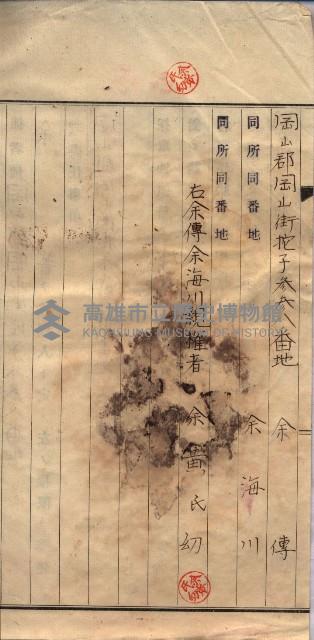 岡山郡岡山街挖子叁六八番地 余傳
同所同番地 余海川
同所同番地
右余傳余海川親權者 余黃氏幼
高雄市立歷史博物館
KAOHSIUNG MUSEUM OF HISTORY